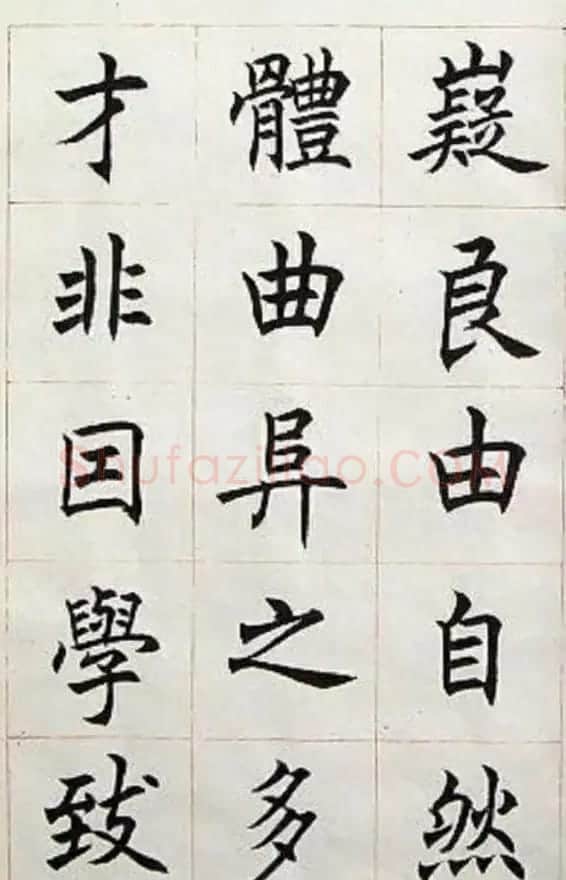 嶷良由自然
體曲异之多
才非囙學致
Shufaziliao.COM